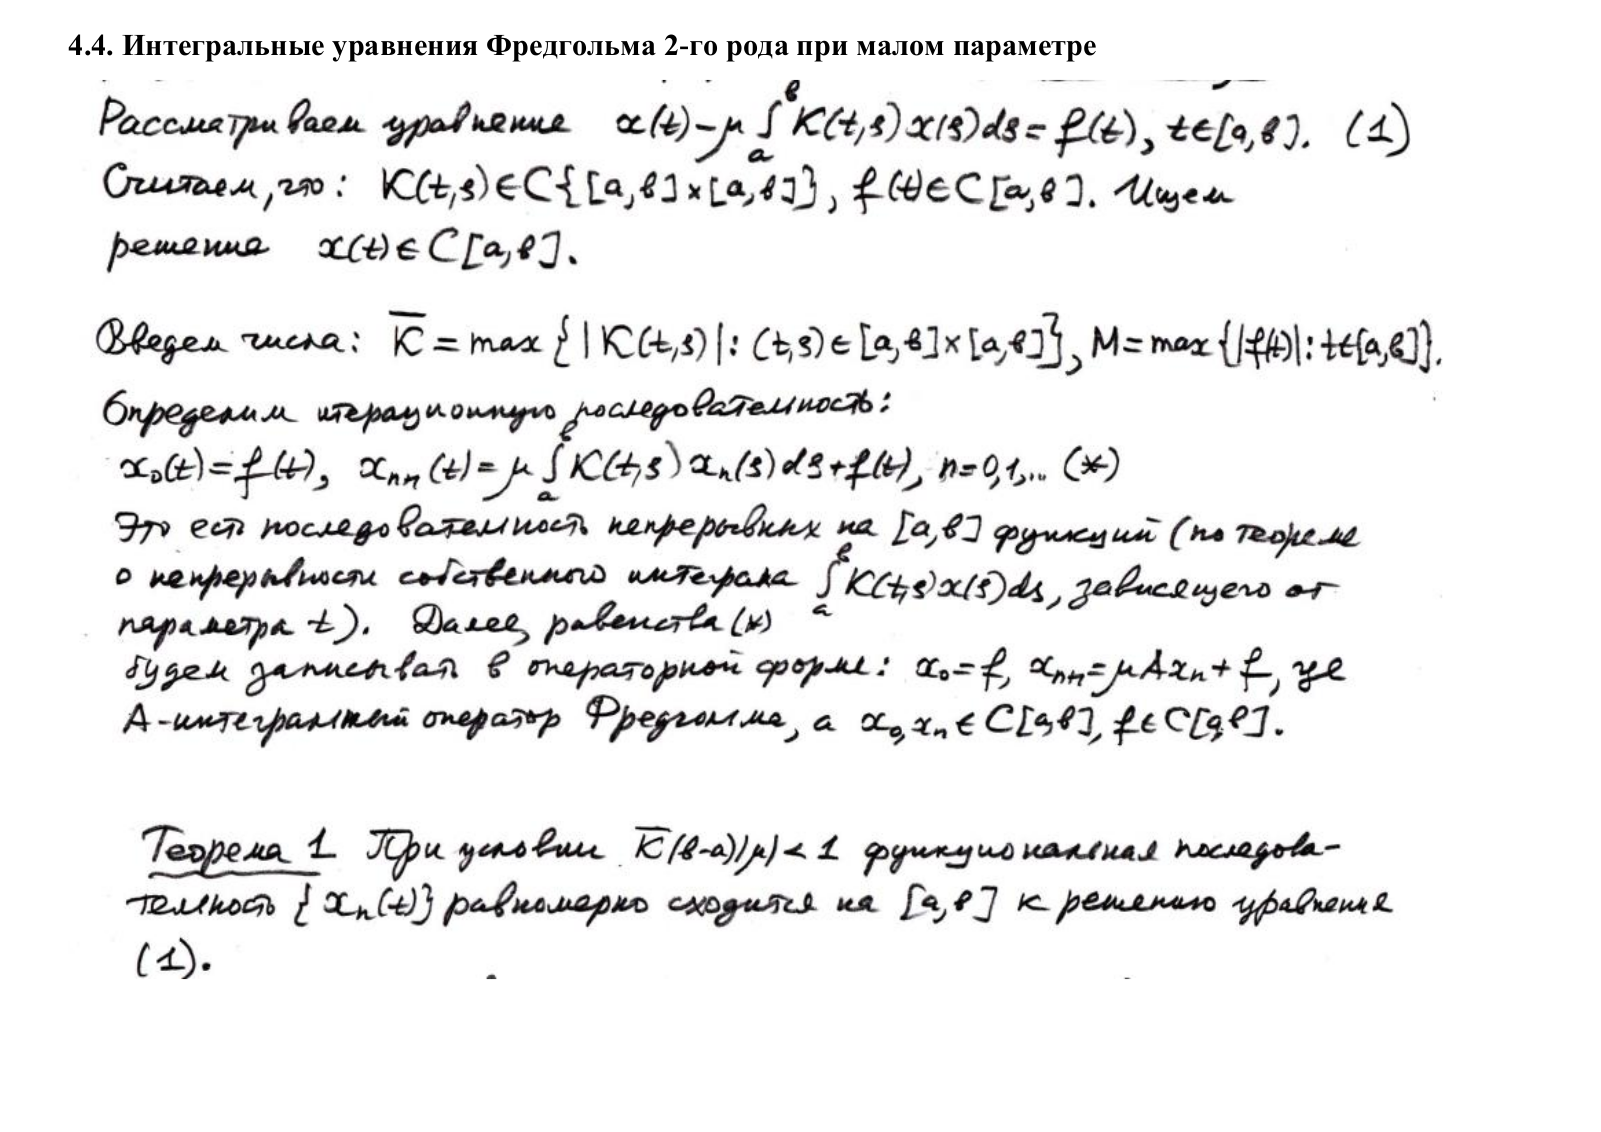 4.4. Интегральные уравнения Фредгольма 2-го рода при малом параметре
Рассматриваем уравнение x(t)-μ∫ₐᵇK(t,s)x(s)ds=f(t), t∈[a,b]. (1)
Считаем, что: K(t,s)∈C{[a,b]×[a,b]}, f(t)∈C[a,b]. Ищем
решения x(t)∈C[a,b].
Введем числа: K̅=max{|K(t,s)|:(t,s)∈[a,b]×[a,b]}, M=max{|f(t)|:t∈[a,b]}.
Определим итерационную последовательность:
x₀(t)=f(t), xₙ₊₁(t)=μ∫ₐᵇK(t,s)xₙ(s)ds+f(t), n=0,1,... (*)
Это есть последовательность непрерывных на [a,b] функций (по теореме
о непрерывности собственного интеграла ∫ₐᵇK(t,s)x(s)ds, зависящего от
параметра t). Далее, равенства (*)
будем записывать в операторной форме: x₀=f, xₙ₊₁=μAxₙ+f, где
A-интегральный оператор Фредгольма, а x₀,xₙ∈C[a,b], f∈C[a,b].
Теорема 1 При условии K̅(b-a)|μ|<1 функциональная последова-
тельность {xₙ(t)} равномерно сходится на [a,b] к решению уравнения
(1).